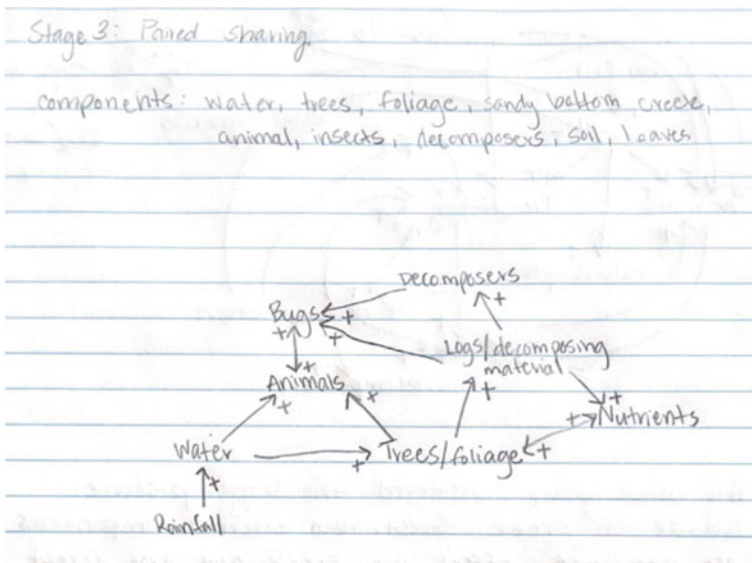 Stage 3: Paired sharing.
components: water, trees, foliage, sandy bottom creek,
animal, insects, decomposers, soil, leaves
Decomposers
+
Bugs +
+ +
Logs/decomposing
material
+
+
Animals
+ +
+
+ Nutrients
Water + Trees/foliage +
+
Rainfall